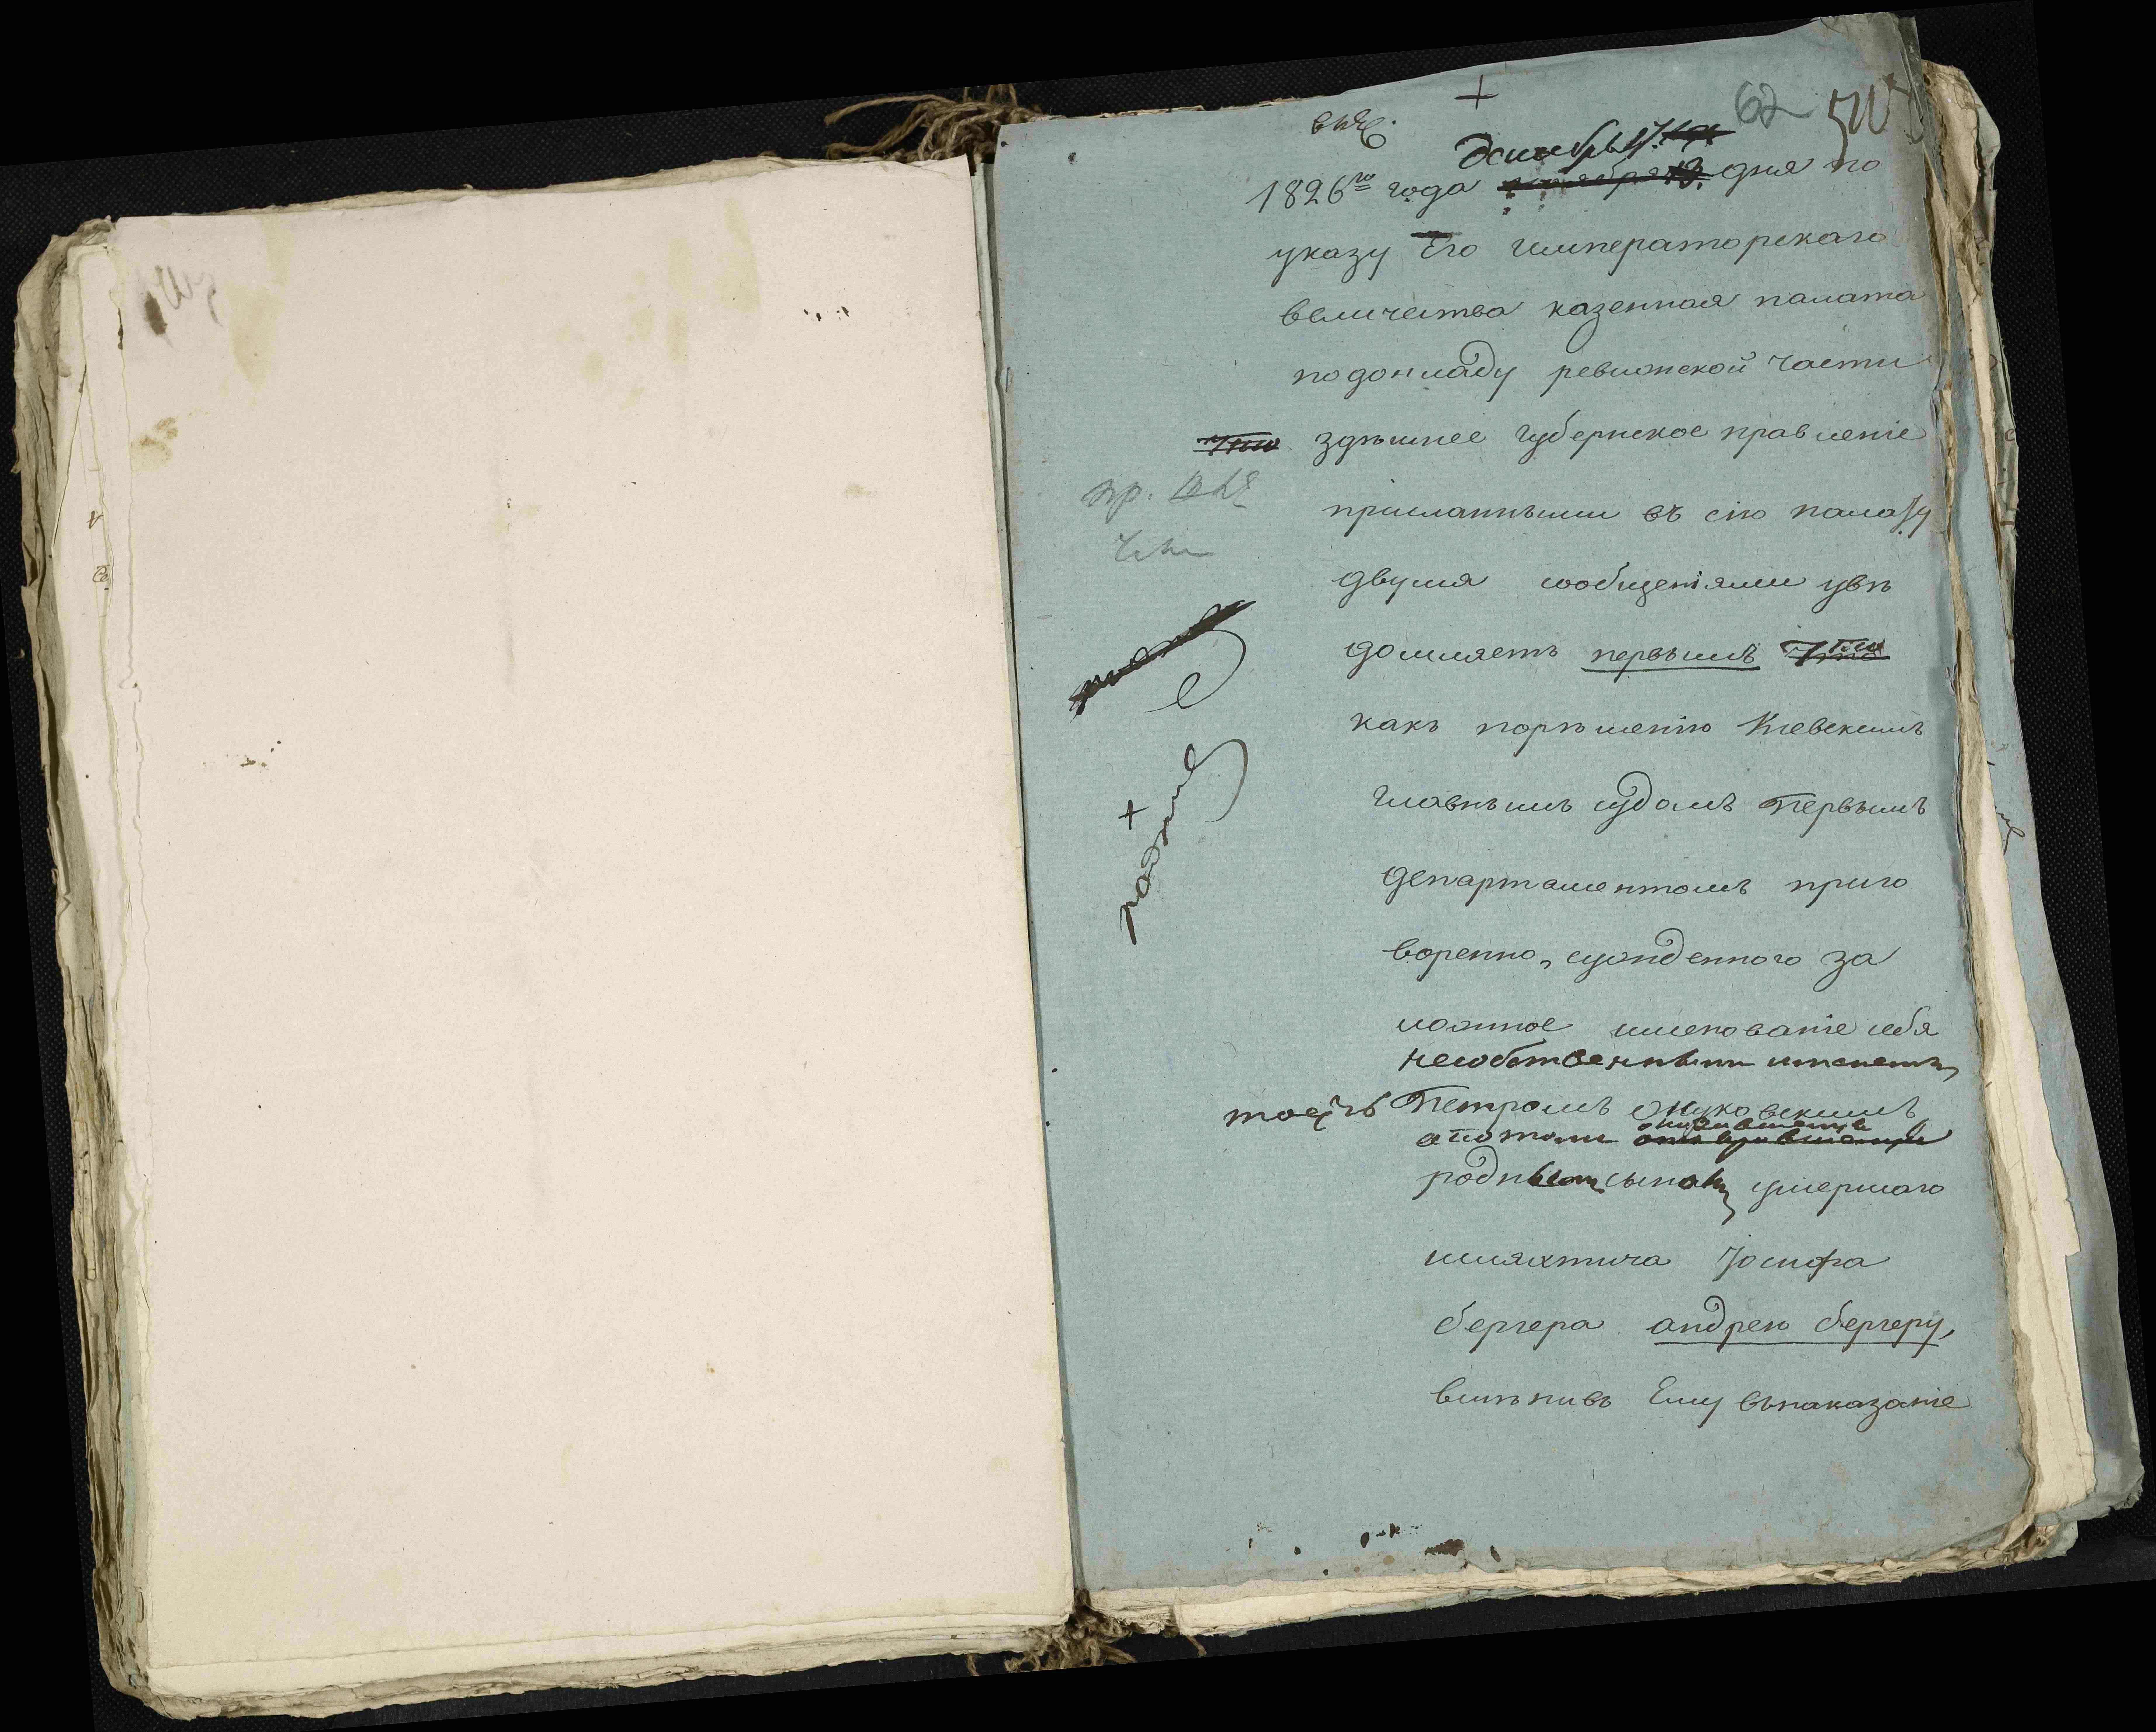 62
декабря 17.
1826го года ноября 13. дня по
указу Его императорскаго
величества казенная палата
по докладу ревижской части
что здѣшнее губернское правленіе
присланными въ сію палату
двумя сообщеніями увѣ
домляетъ первымъ что
какъ порѣшенію Кіевскимъ
главнымъ судомъ Первымъ
департаментомъ приго
воренно, сужденного за
ложное именованіе себя
несобственнымъ именемъ,
тоесть Петромъ Жуковскимъ
а потомъ назвавшемуся
роднымъ сыномъ умершаго
шляхтича Іосифа
бергера андрею бергеру,
вмѣнивъ Ему вънаказаніе